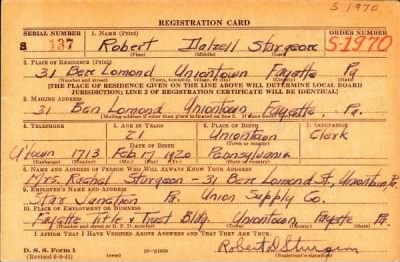 S 1970
REGISTRATION CARD
SERIAL NUMBER 1. Name (Print) ORDER NUMBER
S 137 Robert Dalzell Sturgeon S-1970
(First) (Middle) (Last)
2. Place of Residence (Print)
31 Ben Lomond Uniontown Fayette Pa
(Number and street) (Town, township, village, or city) (County) (State)
[THE PLACE OF RESIDENCE GIVEN ON THE LINE ABOVE WILL DETERMINE LOCAL BOARD
JURISDICTION; LINE 2 OF REGISTRATION CERTIFICATE WILL BE IDENTICAL]
3. Mailing Address
31 Ben Lomond Uniontown Fayette Pa.
[Mailing address if other than place indicated on line 2. If same, insert word same]
4. Telephone 5. Age in Years 6. Place of Birth 7. Occupation
21 Uniontown Clerk
Date of Birth
U'town 1713 Feb. 17 1920 Pennsylvania
(Exchange) (Number) (Mo.) (Day) (Yr.) (State or country)
8. Name and Address of Person Who Will Always Know Your Address
Mrs. Rachel Sturgeon - 31 Ben Lomond St., Uniontown, Pa.
9. Employer's Name and Address
Star Junction Pa. Union Supply Co.
10. Place of Employment or Business
Fayette Title & Trust Bldg. Uniontown, Fayette Pa.
(Number and street or R. F. D. number) (Town) (County) (State)
I Affirm That I Have Verified Above Answers and That They Are True.
Robert D Sturgeon
D. S. S. Form 1